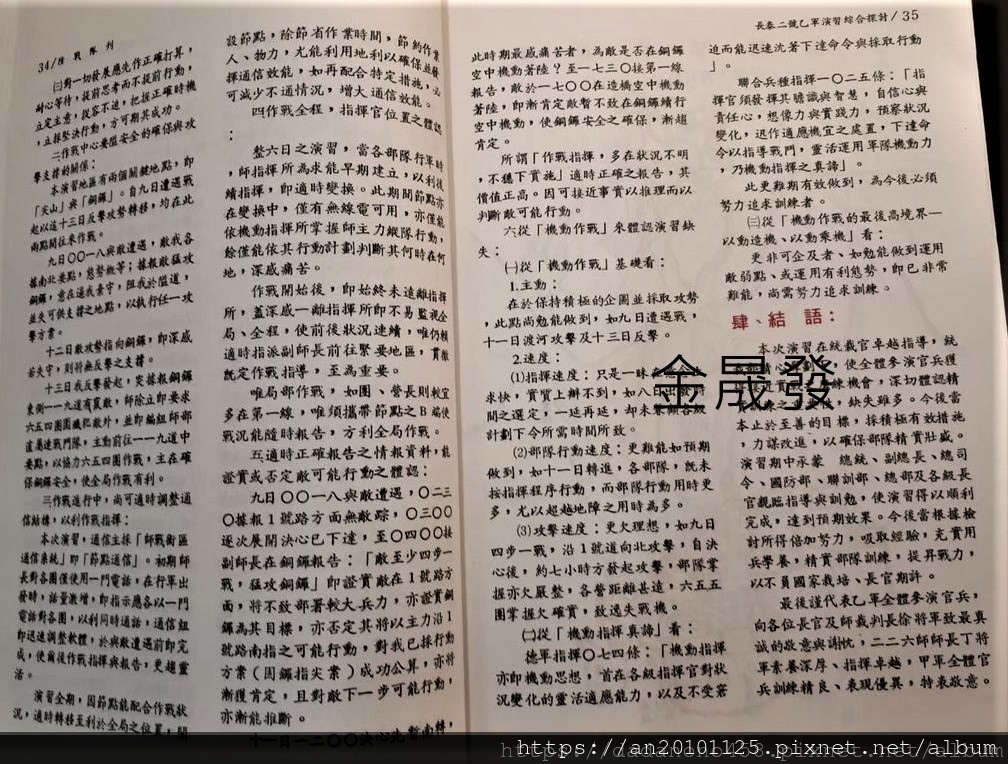 34/陸戰隊刊
㈢對一切發展應先作正確打算，
耐心等待，提前思考而不提前行動，
立定主意，從容不迫，把握正確時機
，立採堅決行動，方可期其成功。
二作戰中心要隘安全的確保與攻
擊支撐的關係：
本演習地區有兩個關鍵地點，即
「尖山」與「銅鑼」。自九日遭遇戰
起以迄十三日反擊攻勢轉移，均在此
兩點間往來作戰。
九日〇〇一八與敵遭遇，敵我各
據南北要點，態勢概等；據報敵猛攻
銅鑼，意在逼我者守，阻我於隘道，
並失可供支撐之地點，以執行任一攻
擊方案。
十二日敵攻勢指向銅鑼，即深感
若失守，則將無反擊之支撐。
十三日我反擊發起，突據報銅鑼
東側一一九道有竄敵，師除立即要求
六五四團團殲犯敵外，並即編組師部
直屬連戰鬥隊，主動前往一一九道中
要點，以協力六五四團作戰，主在確
保銅鑼安全，使全局作戰有利。
三作戰進行中，尚可適時調整通
信結構，以利作戰指揮：
本次演習，通信主採「師戰術區
通信系統」即「節點通信」。初期師
長對各團僅使用一門電話，在行軍出
發時，話量激增，即指示應各以一門
電話對各團，以利同時通話，通信組
即迅速調整軟體，於與敵遭遇前即完
成，使爾後作戰指揮與報告，更趨靈
活。
演習全期，因節點能配合作戰狀
況，適時轉移至利於全局之位置，開
設節點，除節省作業時間，節約作業
人、物力，尤能利用地利以確保並發
揮通信效能，如再配合特定措施，必
可減少不通情況，增大通信效能。
四作戰全程，指揮官位置之體認
：
整六日之演習，當各部隊行軍時
，師指揮所為求能早期建立，以利後
續指揮，即適時變換。此期間節點亦
在變換中，僅有無線電可用，亦僅能
依機動指揮所掌握師主力縱隊行動，
餘僅能依其行動計劃判斷其何時在何
地，深感痛苦。
作戰開始後，即始終未遠離指揮
所，蓋深感一離指揮所即不易監視全
局、全程，使前後狀況連續，唯仍賴
適時指派副師長前往緊要地區，貫徹
既定作戰指導，至為重要。
唯局部作戰，如團、營長則較宜
多在第一線，唯須攜帶節點之B端使
戰況能隨時報告，方利全局作戰。
五適時正確報告之情報資料，能
證實或否定敵可能行動之體認：
九日〇〇一八與敵遭遇，〇二三
〇據報1號路方面無敵踪，〇三〇〇
逐次展開決心已下達，至〇四〇〇接
副師長在銅鑼報告：「敵至少四步一
戰，猛攻銅鑼」即證實敵在1號路方
面，將不致部署較大兵力，亦證實銅
鑼為其目標，亦否定其將以主力沿1
號路南指之可能行動，對我已採行動
方案（固鑼指尖案）成功公算，亦將
漸獲肯定，且對敵下一步可能行動，
亦漸能推斷。
十一日一二〇〇決心先暫南轉，
長泰二號乙軍演習綜合探討/35
此時期最感痛苦者，為敵是否在銅鑼
空中機動著陸？至一七三〇接第一線
報告，敵於一七〇〇在造橋空中機動
著陸，即漸肯定敵暫不在銅鑼續行
空中機動，使銅鑼安全之確保，漸趨
肯定。
所謂「作戰指揮，多在狀況不明
，不穩下實施」適時正確之報告，其
價值正高。因可接近事實以推理而以
判斷敵可能行動。
六從「機動作戰」來體認演習缺
失：
㈠從「機動作戰」基礎看：
1.主動：
在於保持積極的企圖並採取攻勢
，此點尚勉能做到，如九日遭遇戰，
十一日渡河攻擊及十三日反擊。
2.速度：
⑴指揮速度：只是一昧
求快，實質上辦不到，如八日出
間之選定，一延再延，却未
計劃下令所當時間所致。
⑵部隊行動速度：更難能如預期
做到，如十一日轉進，各部隊，既未
按指揮程序行動，而部隊行動用時更
多，尤以超越地障之用時為多。
⑶攻擊速度：更欠理想，如九日
四步一戰，沿1號道向北攻擊，自決
心後，約七小時方發起攻擊，部隊掌
握亦欠嚴整，各營距離甚遠，六五五
團掌握欠確實，致逸失戰機。
㈡從「機動指揮真諦」看：
德軍指揮〇七四條：「機動指揮
亦即機動思想，首在各級指揮官對狀
況變化的靈活適應能力，以及不受著
迫而能迅速沈著下達命令與採取行動
」。
聯合兵種指揮一〇二五條：「指
揮官須發揮其膽識與智慧，自信心與
責任心，想像力與實踐力，預察狀況
變化，迅作適應機宜之處置，下達命
令以指導戰鬥，靈活運用軍隊機動力
，乃機動指揮之真諦」。
此更難期有效做到，為今後必須
努力追求訓練者。
㈢從「機動作戰的最後高境界—
以動造機、以動乘機」看：
更非可企及者、如勉能做到運用
敵弱點、或運用有利態勢，即已非常
難能，尚需努力追求訓練。
肆、結 語：
本次演習在統裁官卓越指導，統
使全體參演官兵獲
練機會，深切體認精
缺失雖多。今後當
本止於至善的目標，採積極有效措施
，力謀改進，以確保部隊精實壯盛。
演習期中承蒙 總統、副總長、總司
令、國防部、聯訓部、總部及各級長
官親臨指導與訓勉，使演習得以順利
完成，達到預期效果。今後當根據檢
討所得倍加努力，吸取經驗，充實用
兵學養，精實部隊訓練，提昇戰力，
以不負國家栽培、長官期許。
最後謹代表乙軍全體參演官兵，
向各位長官及師裁判長徐將軍致最真
誠的敬意與謝忱，二二六師師長丁將
軍素養深厚、指揮卓越，甲軍全體官
兵訓練精良、表現優異，特表敬意。
金晟發
https://an20101125.pixnet.net/album